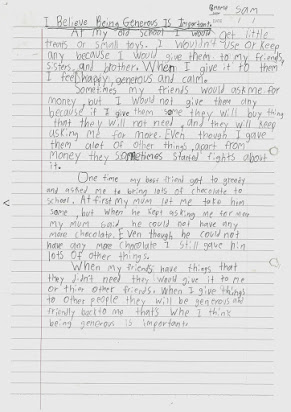 Name Sam
I Believe Being Generous Is Important
At my old school I would get little
treats or small toys. I wouldn't use or keep
any because I would give them to my friends,
sisters and brother. When I give it to them
I feel happy, generous and calm.
Sometimes my friends would ask me for
money, but I would not give them any
because if I give them some they will buy thing
that they will not need, and they will keep
asking me for more. Even though I gave
them alot of other things, apart from
money they sometimes started fights about
it.
One time my best friend got to greedy
and asked me to bring lots of chocolate to
school. At first my mum let me take him
some, but when he kept asking me for more
my mum said he could not have any
more chocolate. Even though he could not
have any more chocolate I still gave him
lots of other things.
When my friends have things that
they don't need they would give it to me
or thier other friends. When I give things
to other people they will be generous and
friendly back to me that's whe I think
being generous is important.